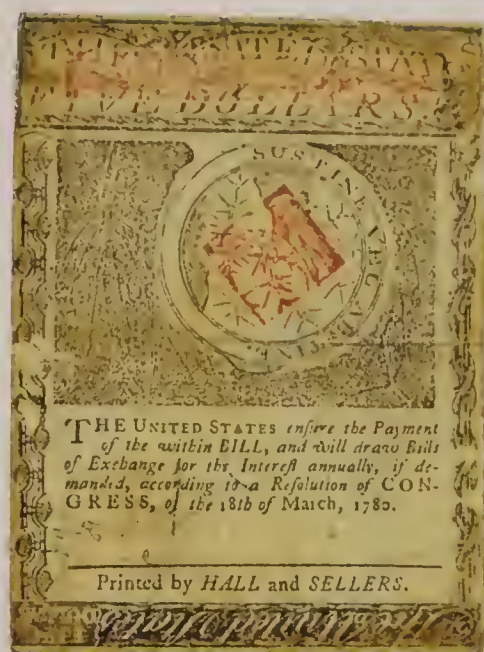 FIVE DOLLARS.
SUSTINE VEL ABSTINE
THE UNITED STATES enſure the Payment
of the within BILL, and will draw Bills
of Exchange for the Intereſt annually, if de-
manded, according to a Reſolution of CON-
GRESS, of the 18th of March, 1780.
Printed by HALL and SELLERS.
The United States